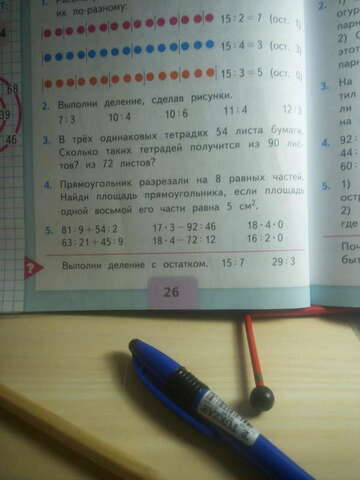 их по-разному:
15 : 2 = 7 (ост. 1)
15 : 4 = 3 (ост. 3)
15 : 3 = 5 (ост. 0)
2. Выполни деление, сделав рисунки.
7 : 3 10 : 4 10 : 6 11 : 4 12 : 3
3. В трёх одинаковых тетрадях 54 листа бумаги.
Сколько таких тетрадей получится из 90 лис-
тов? из 72 листов?
4. Прямоугольник разрезали на 8 равных частей.
Найди площадь прямоугольника, если площадь
одной восьмой его части равна 5 см².
5. 81 : 9 + 54 : 2 17 · 3 − 92 : 46 18 · 4 · 0
63 : 21 + 45 : 9 18 · 4 − 72 : 12 16 : 2 · 0
? Выполни деление с остатком. 15 : 7 29 : 3
26
68
39
: 46
4
2.
2)
3. На
тил
ли
на
4. 92 :
44 :
60 :
5. 1)
2)
где